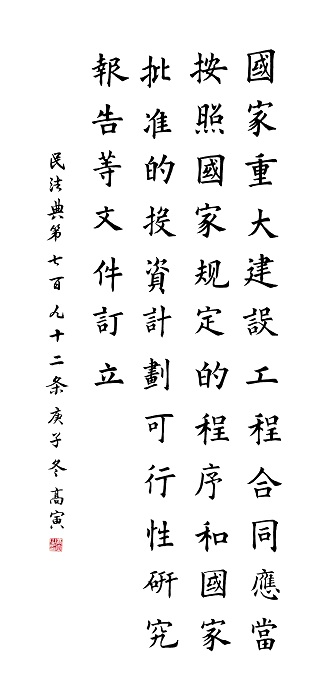 國家重大建設工程合同應當
按照國家规定的程序和國家
批准的投資計劃可行性研究
報告等文件訂立
民法典第七百九十二条庚子冬高寅